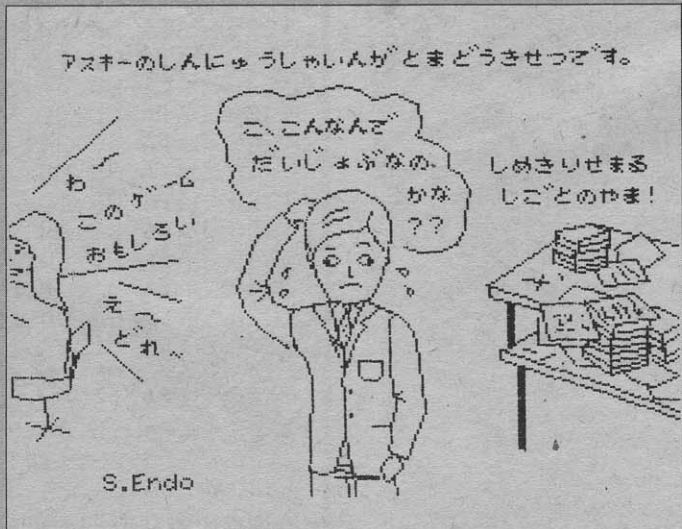 アスキーのしんにゅうしゃいんがとまどうきせつです。
わー
このゲーム
おもしろい
えー
どれ〜
こ、こんなんで
だいじょぶなの、
かな
??
しめきりせまる
しごとのやま!
S.Endo